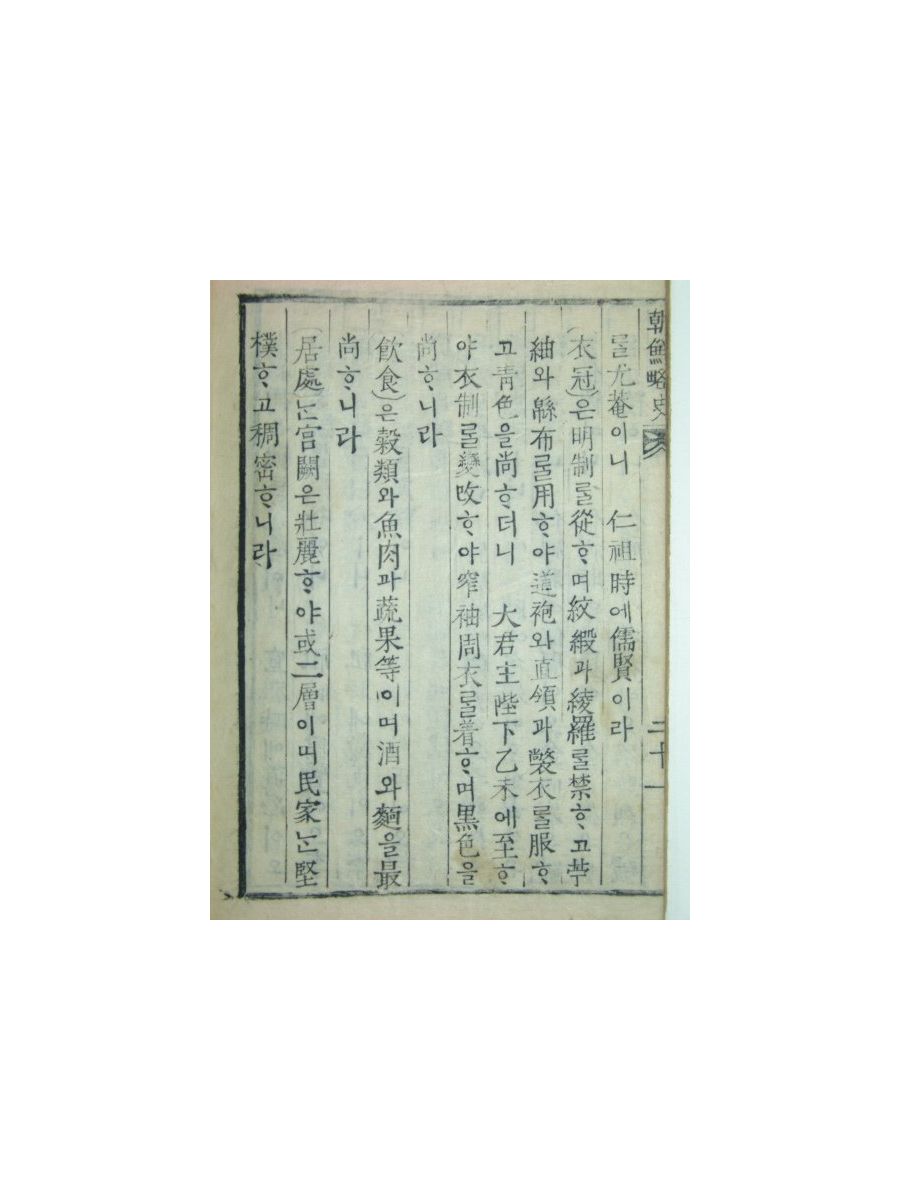 朝鮮略史 二十一
ᄅᆞᆯ尤菴이니 仁祖時에儒賢이라
(衣冠)은明制ᄅᆞᆯ從ᄒᆞ며紋緞과綾羅ᄅᆞᆯ禁ᄒᆞ고苧
紬와緜布ᄅᆞᆯ用ᄒᆞ야道袍와直領과氅衣ᄅᆞᆯ服ᄒᆞ
고靑色을尙ᄒᆞ더니 大君主陛下乙未에至ᄒᆞ
야衣制ᄅᆞᆯ變改ᄒᆞ야窄袖周衣ᄅᆞᆯ着ᄒᆞ며黑色을
尙ᄒᆞ니라
(飮食)은穀類와魚肉과蔬果等이며酒와麵을最
尙ᄒᆞ니라
(居處)ᄂᆞᆫ宮闕은壯麗ᄒᆞ야或二層이며民家ᄂᆞᆫ堅
樸ᄒᆞ고稠密ᄒᆞ니라